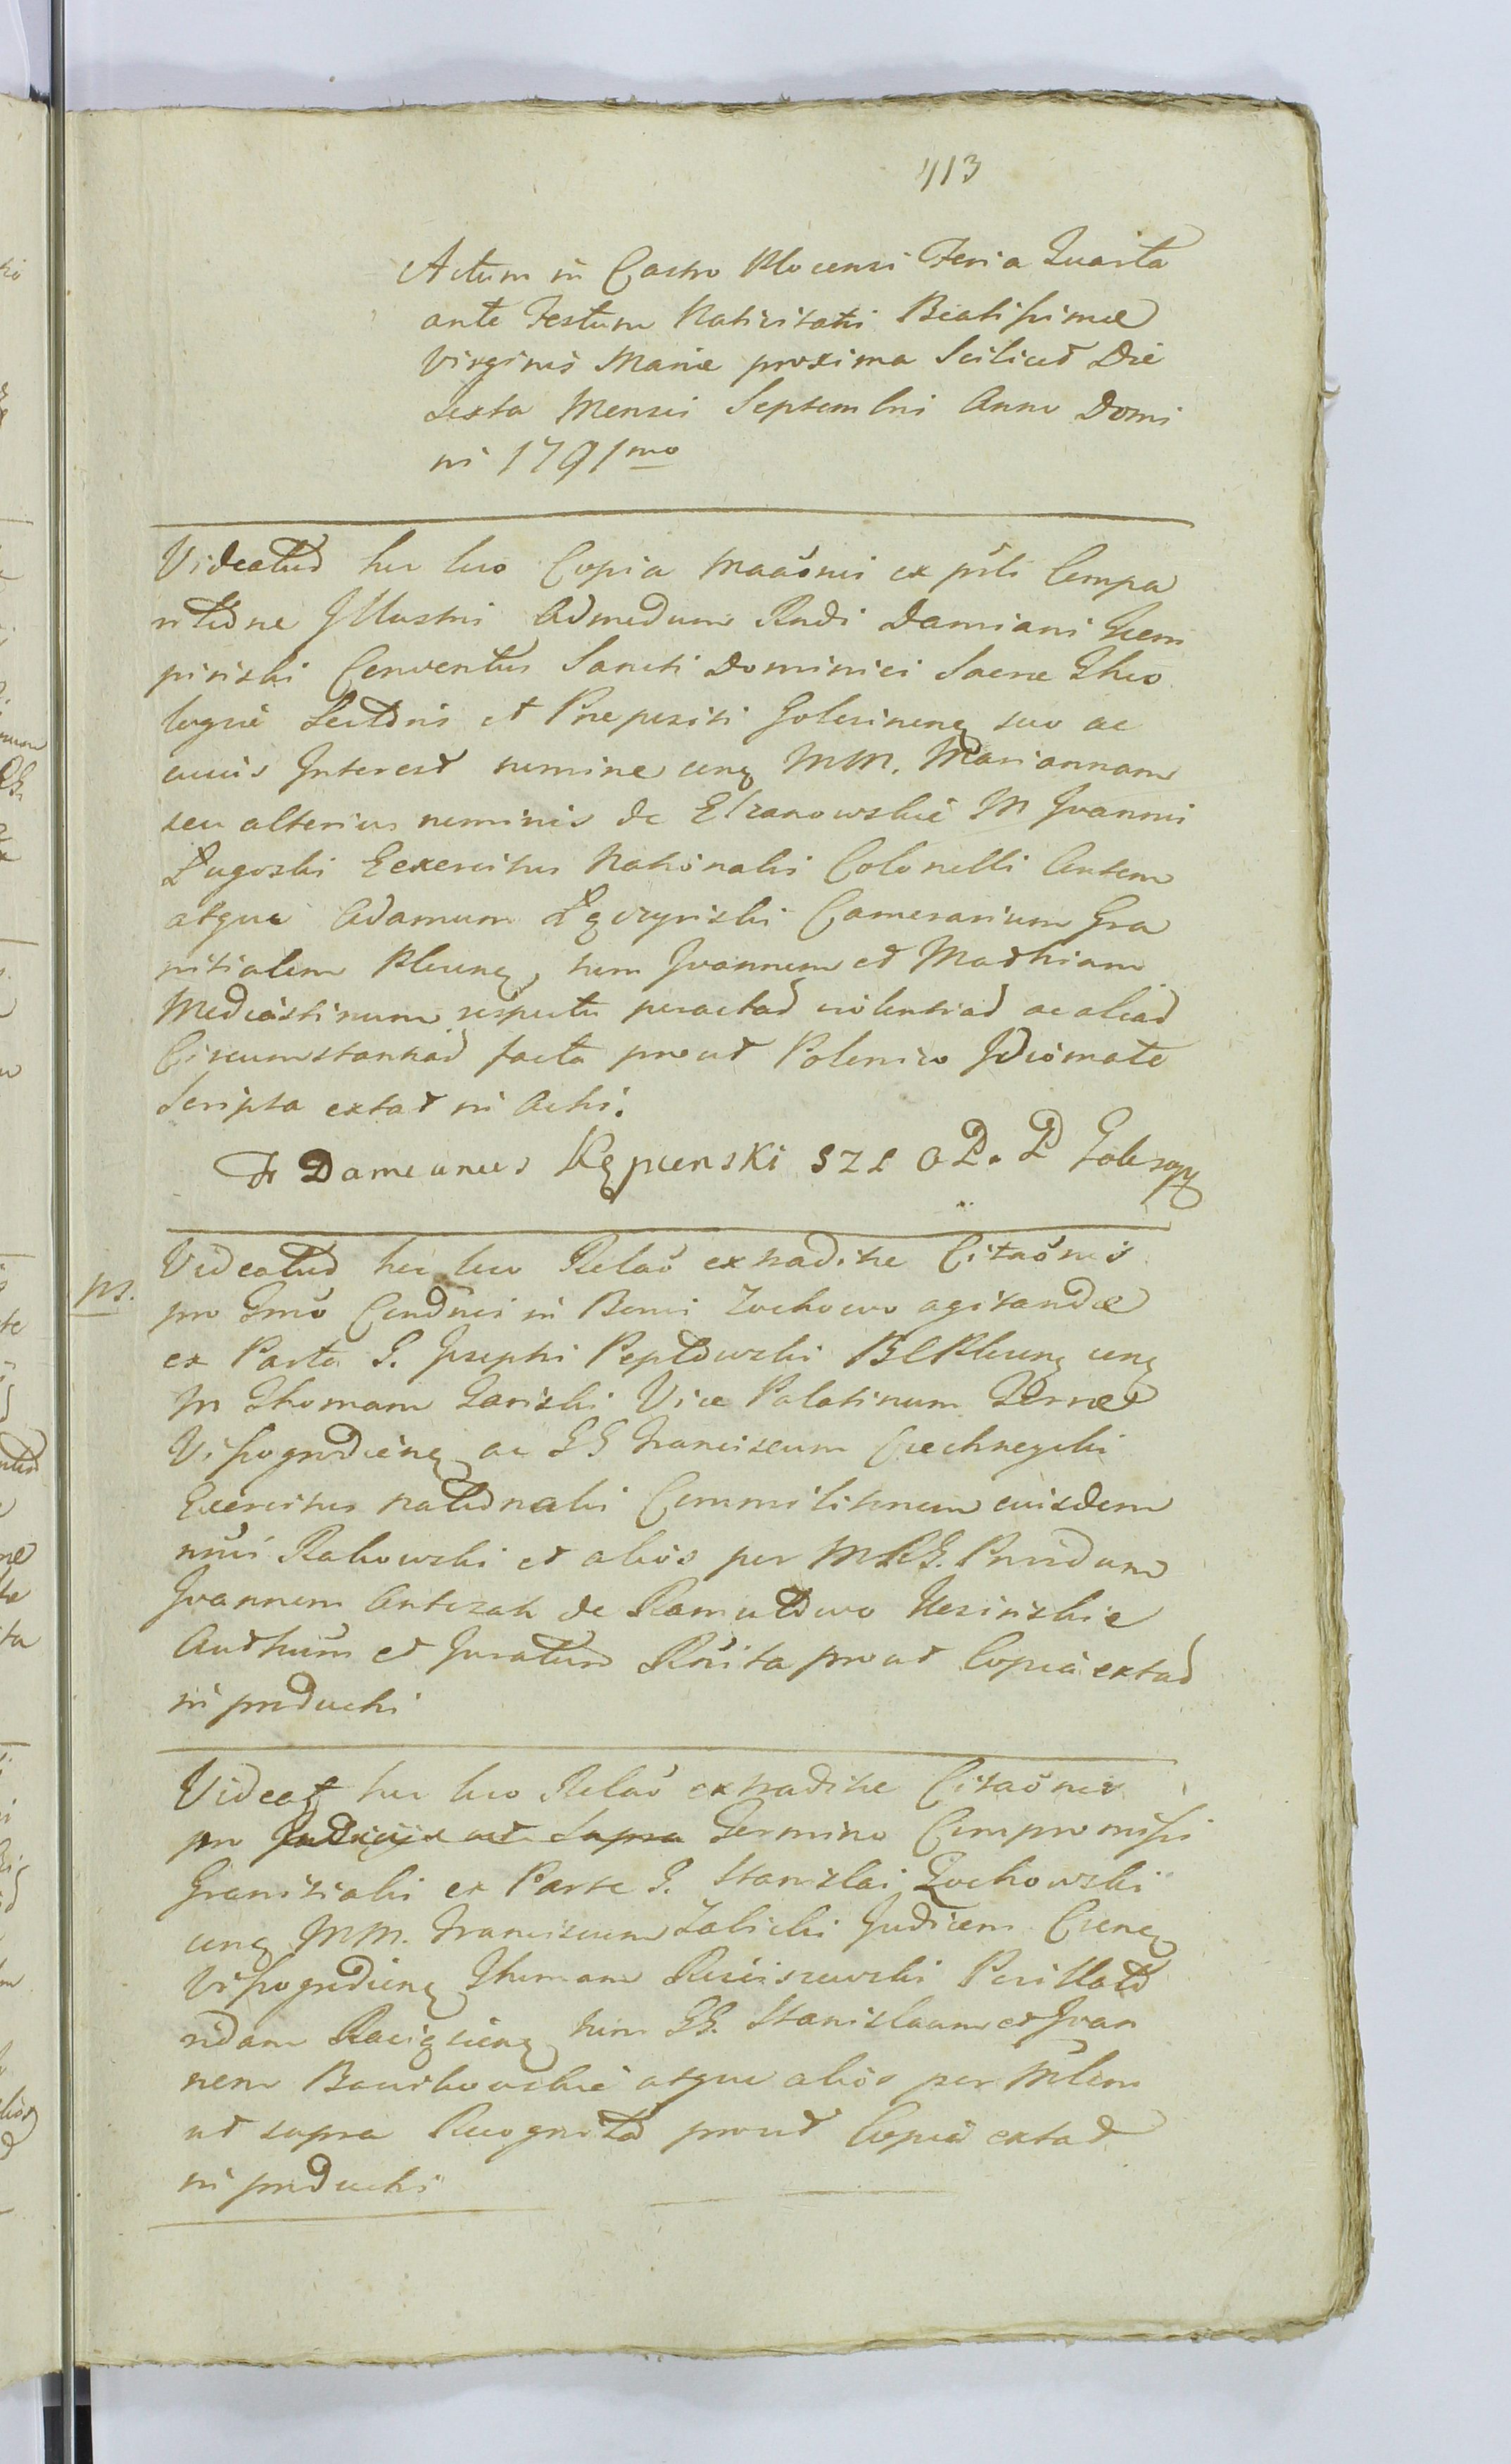 413
Actum in Castro Plocensi Feria Quarta
ante Festum Nativitatis Beatissimæ
Virginis Mariæ proxima Scilicet Die
Sexta Mensis Septembris Anno Domi
ni 1791mo
Videatur hic loco Copia Maãonis ex psti Compa
ritione Illustris Admodum Rndi Damiani Kem
pinski Conventus Sancti Dominici Sacræ Theo
logiæ Lectoris et Præpositi suo ac
cuius Interest nomine conq MM. Mariannam
seu alterius nominis de Elzanowskie M Joannis
Ługoski Exercitus Nationalis Colonelli Consortem
atque Adamum Łączyński Camerarium Gra
nitialem Plocenq, tum Joannem et Mathiam
Mediastinum respectu peractar violentiar ac aliar
Circumstantiar facta prout Polonico Idiomate
Scripta extat in Actis.
Fr Damianus Kępienski S Z L O P. P
ps.
Videatur hic loco Relaõ extraditæ Citaõnis
pro Tmõ Condnis in Bonis Zochowo agitandæ
ex Parte G. Josephi Peptowski BCPlocenq conq
M Thomam Zarński Vice Palatinum Terræ
Vissogrodienq ac GG Franciscum Ciechnzycki
Exercitus nationalis Commilitonem eiusdem
nnis Rakowski et alios per MRG. Providum
Joannem Antczak de Ramutowo
Authum et Juratum Rnita prout Copia extat
in productis
Videatq hic loco Relaõ extraditæ Citaõnis
pro Termino Compromissi
Granitialis ex Parte G. Stanislai Zochowski
conq MM. Franciscum Zalicki Judicem Crenq
Vissogrodienq Thomam Rościszewski Pocillato
ridam Raciązienq tum GG. Stanislaum et Joan
nem Borchowskie atque alios per Mlem
ut supra Recognita prout Copia extat
in productis